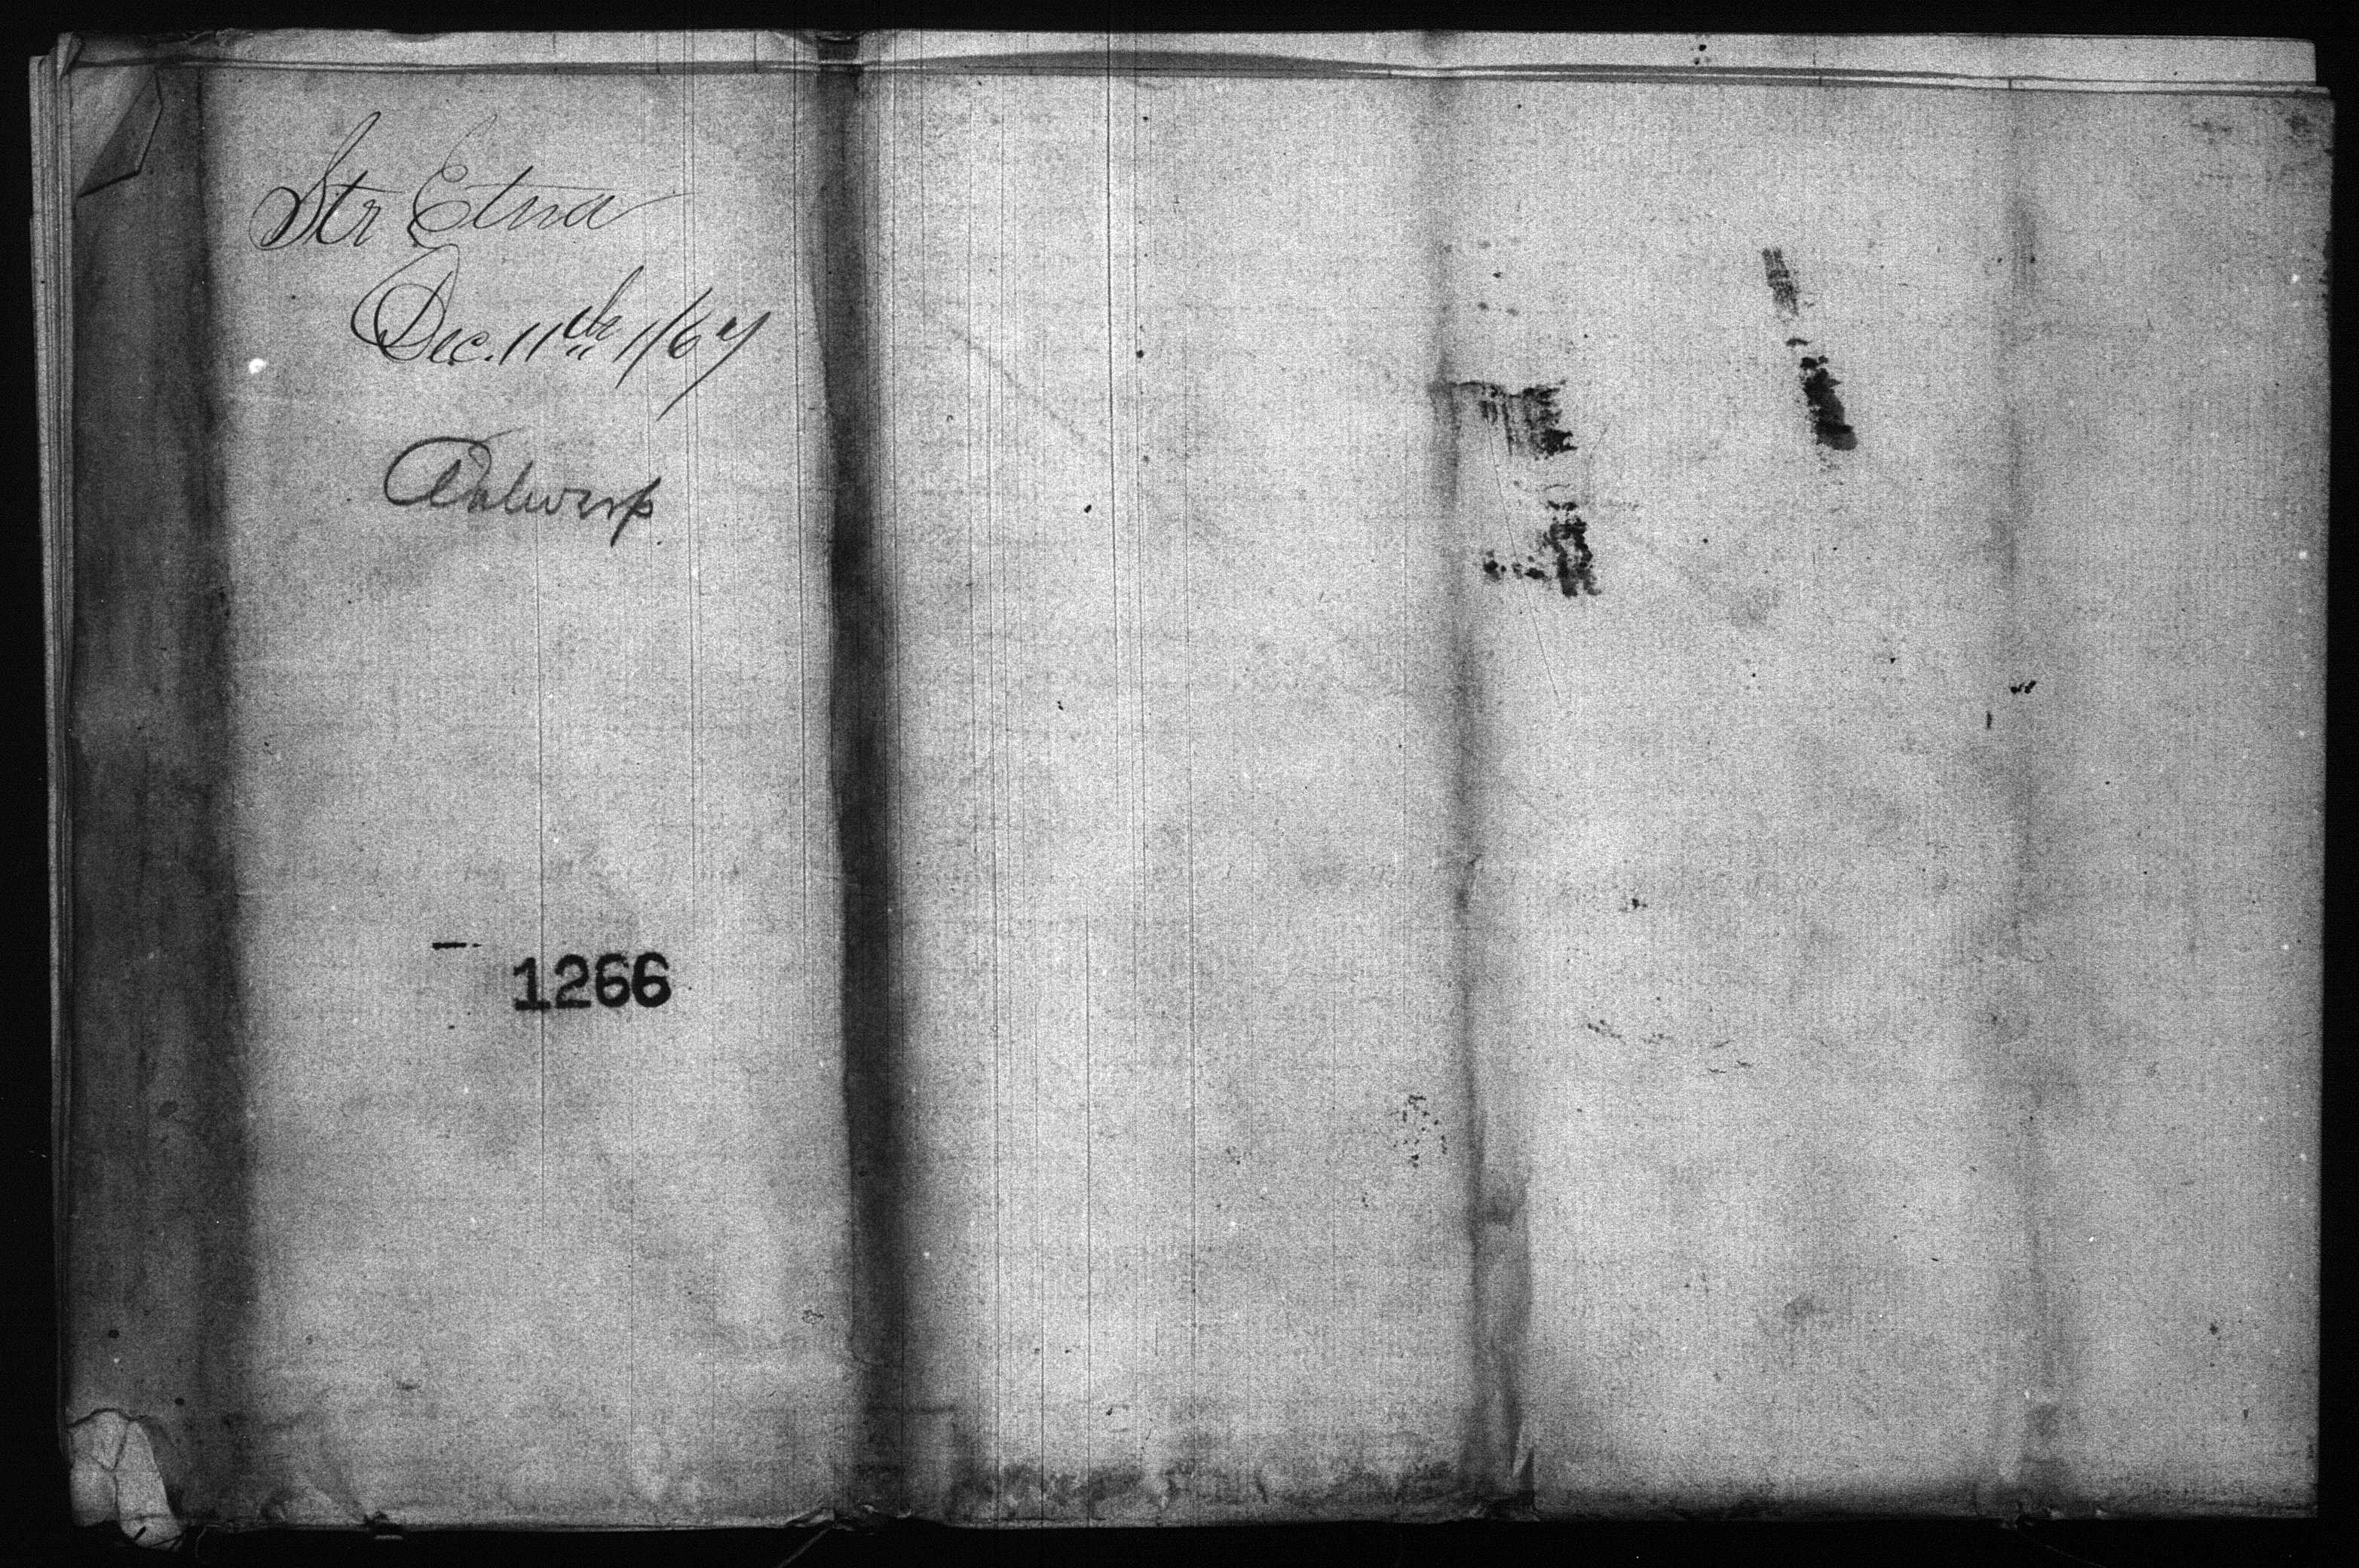 Str Etna
Dec. 11th 1/67
Antwerp
1266